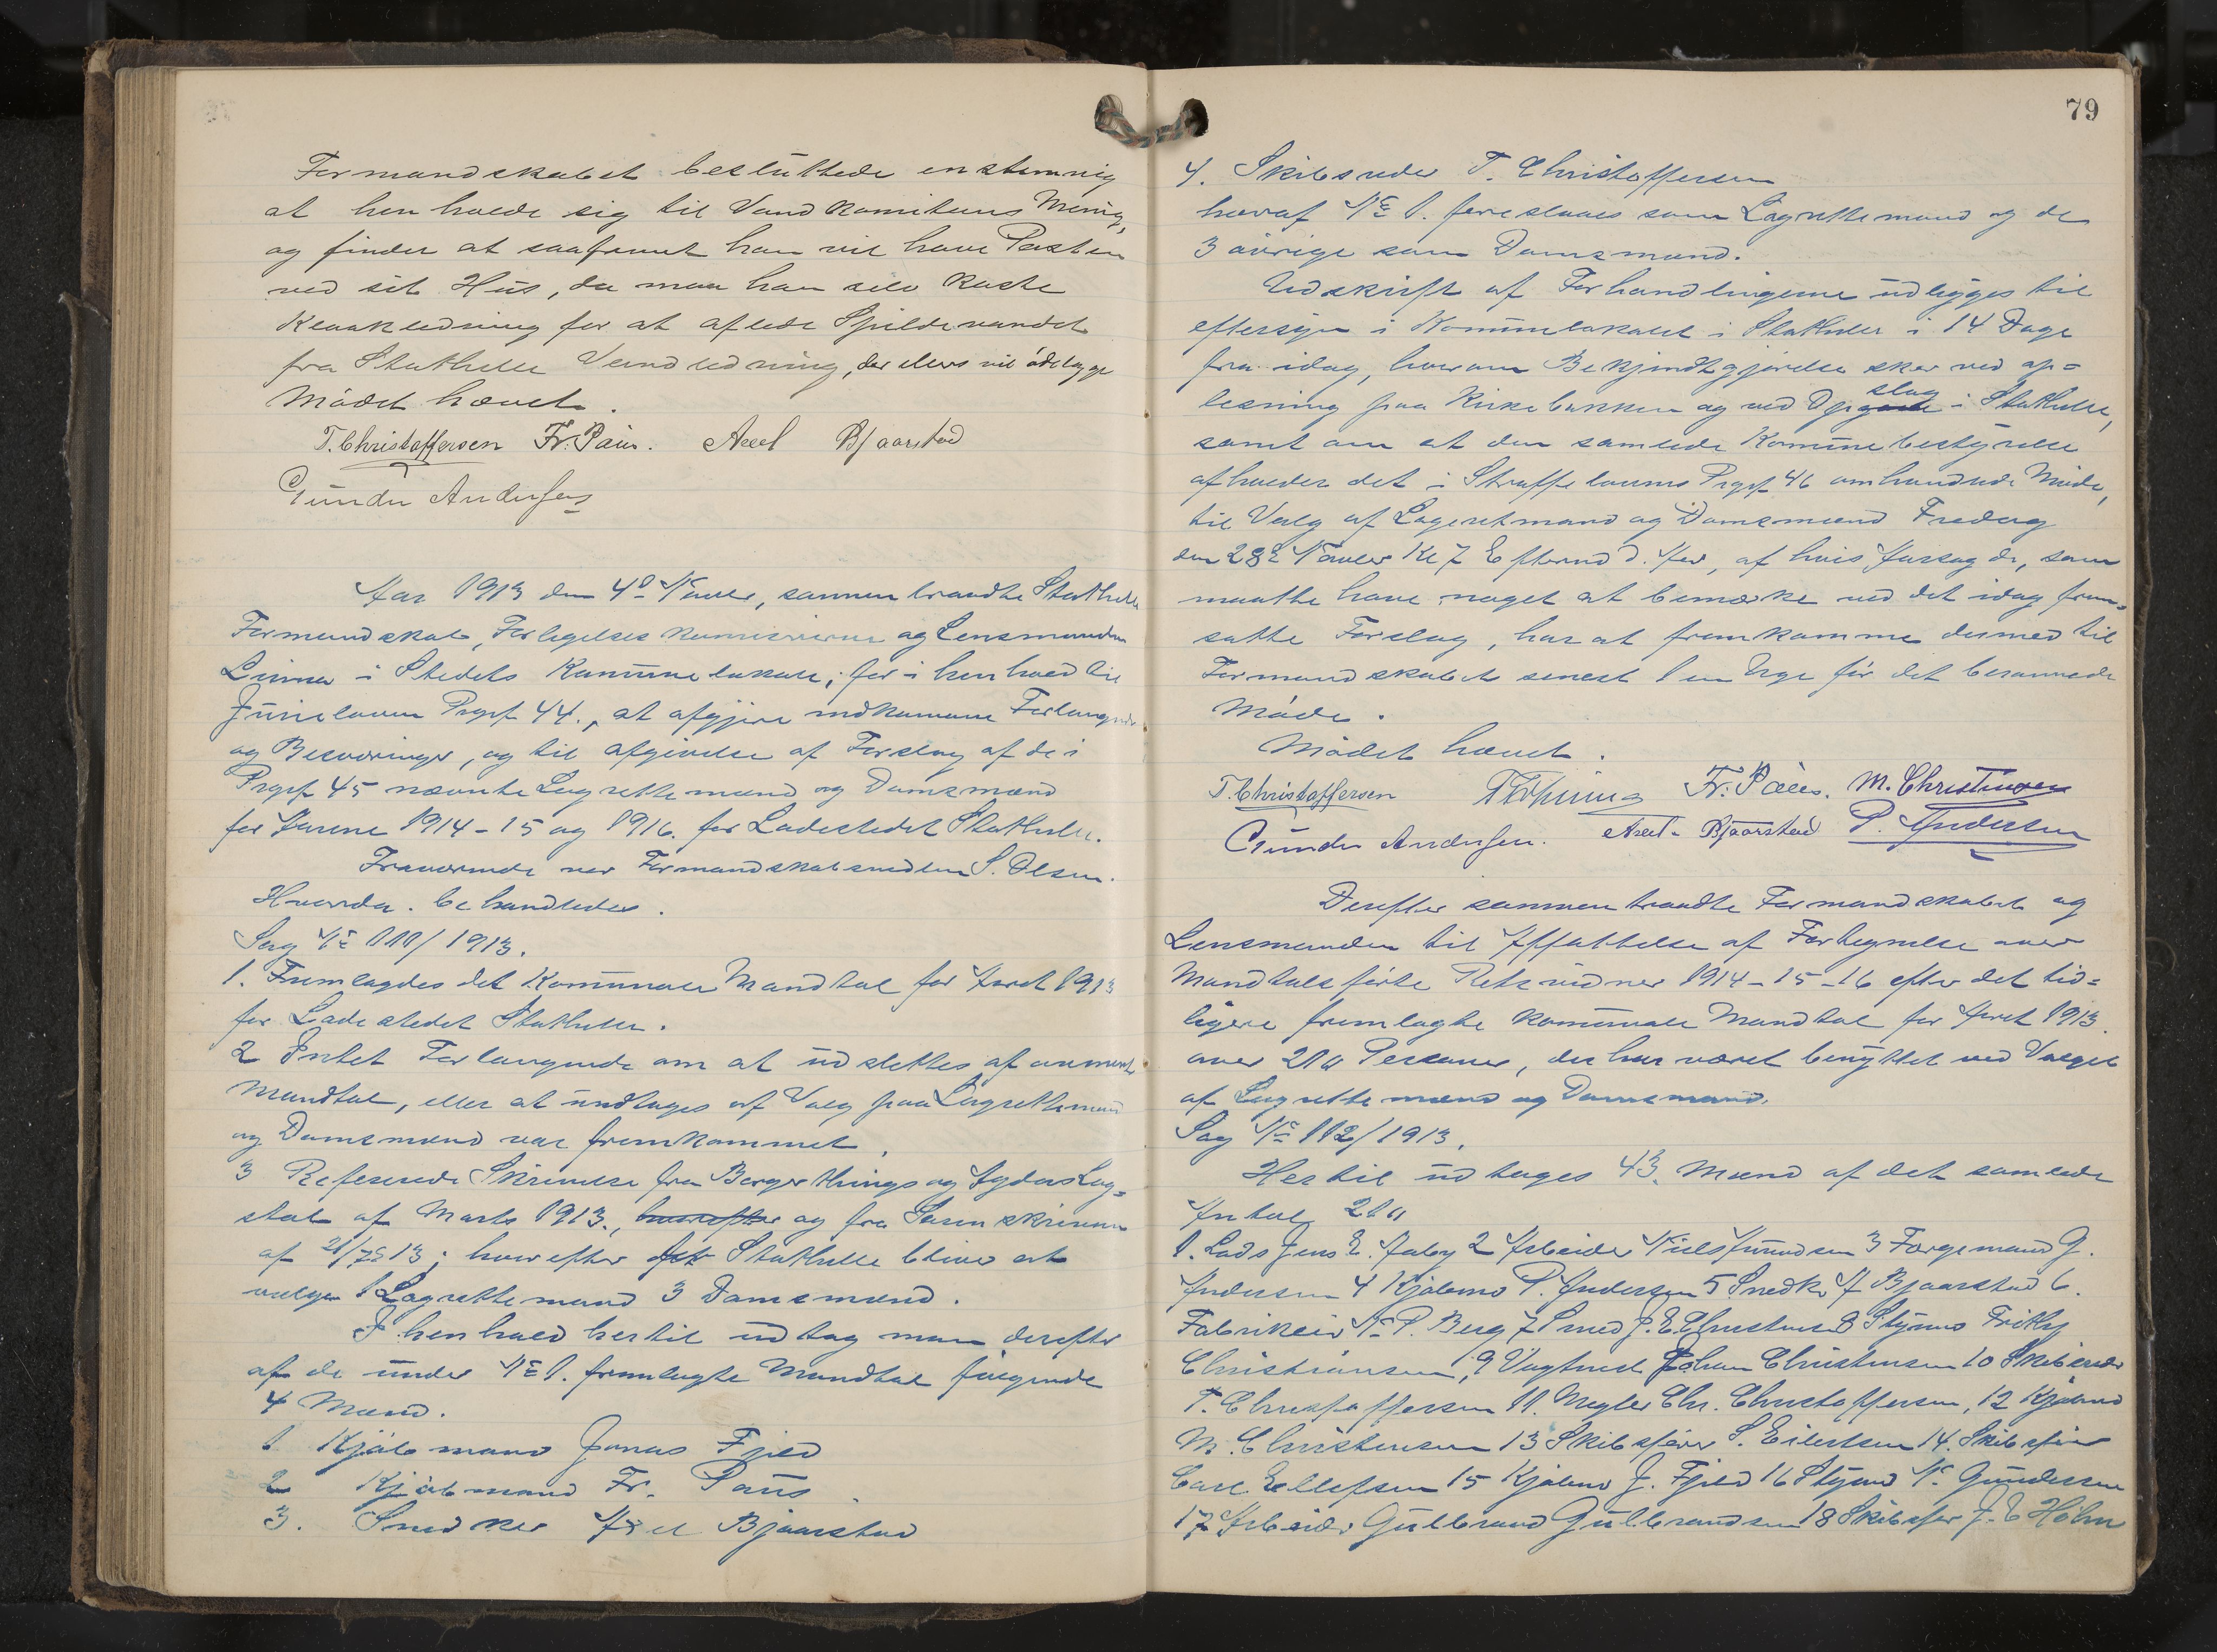 Formandskabet besluttede enstemmig
at henholde sig til Vandkomiteens Mening,
og finder at saafremt han vil have Posten
ved sit Hus, da maa han selv koste
Kloakledning for at aflede Spildevandet
fra Stathelle Vandledning, der elers vil ödelægge
Mödet hævet.
T. Christoffersen Fr. Paus. Axel Bjaarstad
Gunder Andersen
Aar 1913 den 4de Nover, sammentraadte Stathelle
Formandskab, Forligelseskomisærerne og Lensmanden
Linna i Stedets Komunelokale; for i henhold til
Juryloven Prgrf 44., at afgjøre indkomne Forlangender
og Besværinger, og til afgivelse af Forslag af de i
Prgrf 45 nævnte Lagrettemænd og Domsmænd
for Aarene 1914-15 og 1916. for Ladestedet Stathelle.
Fraværende var Formandskabsmedlem S. Olsen.
Hvorda. behandledes.
Sag No 111/1913.
1. Fremlagdes det Komunale Mandtal for Aaret 1913
for Ladestedet Stathelle.
2 Intet Forlangende om at udslettes af
Mandtal, eller at undtages af Valg paa Lagrettemænd
og Domsmænd var fremkommet.
3 Refererede Skrivelse fra Borgerthings og Agders Lag=
stol af Marts 1913., hvorefter og fra Sorenskriveren
af 21/7 13; hvorefter Stathelle bliver at
vælge 1 Lagrettemand 3 Domsmænd.
I henhold hertil udtog man derefter
af de under No 1. fremlagte Mandtal fölgende
4 Mænd.
1 Kjöbmand Jonas Fjeld
2 Kjöbmand Fr. Paus.
3. Snedker Axel Bjaarstad
79
4. Skibsreder T. Christoffersen
hvoraf No 1. foreslaaes som Lagrettemand og de
3 övrige som Domsmænd.
Udskrift af Forhandlingerne udlægges til
eftersyn i Komunelokalet i Stathelle i 14 Dage
fra idag, hvorom Bekjendtgjörelse sker ved op=
læsning paa Kirkebakken og ved Opslag i Stathelle,
samt om at den samlede Komunebestyrelse
afholder det i Straffelovens Prgrf 46 omhandlede Möde,
til Valg af Lagretmænd og Domsmænd Fredag
den 28de Nover Kl 7 Eftermd d. Aar, af hvis Aarsag de, som
maatte have noget at bemærke ved det idag frem=
satte Forslag, har at fremkomme dermed til
Formandskabet senest 1 en Uge för det berammede
Möde.
Mödet hævet.
T. Christoffersen Fr. Paus. M. Christensen
Gunder Andersen. Axel Bjaarstad P. Andersen
Derefter sammentraadte Formandskabet og
Lensmanden til Affattelse af Fortegnelse over
Mandtalsförte Retsvidner 1914-15-16 efter det tid=
ligere fremlagte komunale Mandtal for Aaret 1913.
over 211 Personer, der har været benyttet ved Valget
af Lagrettemænd og Domsmænd.
Sag No 112/1913.
Hertil udtages 43. Mænd af det samlede
Antal 211
1. Lods Jens E. Aaby 2 Arbeider Niels Amundsen 3 Færgemand G.
Andersen 4 Kjöbmd P. Andersen 5 Snedk. A Bjaarstad 6.
Fabrikeier N. P. Berg 7 Smed J. E Christensen 8 Styrmd Frithj
Christiansen, 9 Vagtmd Johan Christensen 10 Skibsreder
T. Christoffersen 11. Megler Chr. Christoffersen, 12 Kjöbmd
M. Christensen 13 Skibsförer S. Eilertsen 14. Skibsförer
Carl Ellefsen 15 Kjöbmd J. Fjeld 16 Styrmd N. Gundersen
17 Arbeider Gulbrand Gulbrandsen 18 Skibsför J. C Holm